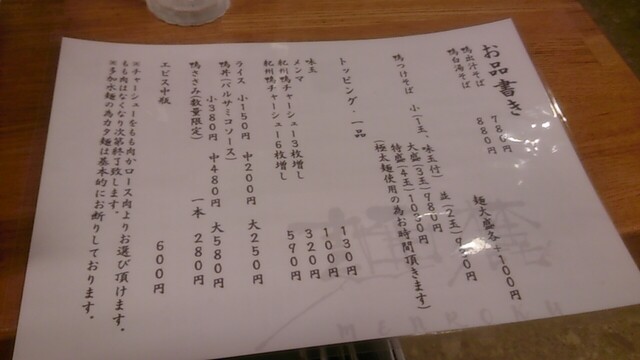 お品書き
鴨出汁そば 780円
鴨白湯そば 880円
麺大盛各+100円
鴨つけそば 小(1玉、味玉付) 並(2玉)
大盛(3玉)980円
特盛(4玉)1030円
(極太麺使用の為お時間頂きます)
トッピング・一品
味玉 130円
メンマ 100円
紀州鴨チャーシュー3枚増し 320円
紀州鴨チャーシュー6枚増し 590円
ライス 小150円 中200円 大250円
鴨丼(バルサミコソース)
小380円 中480円 大580円
鴨ささみ(数量限定) 一本 280円
エビス中瓶 600円
※チャーシューをもも肉かロース肉よりお選び頂けます。
もも肉はなくなり次第終了致します。
※多加水麺の為カタ麺は基本的にお断りしております。